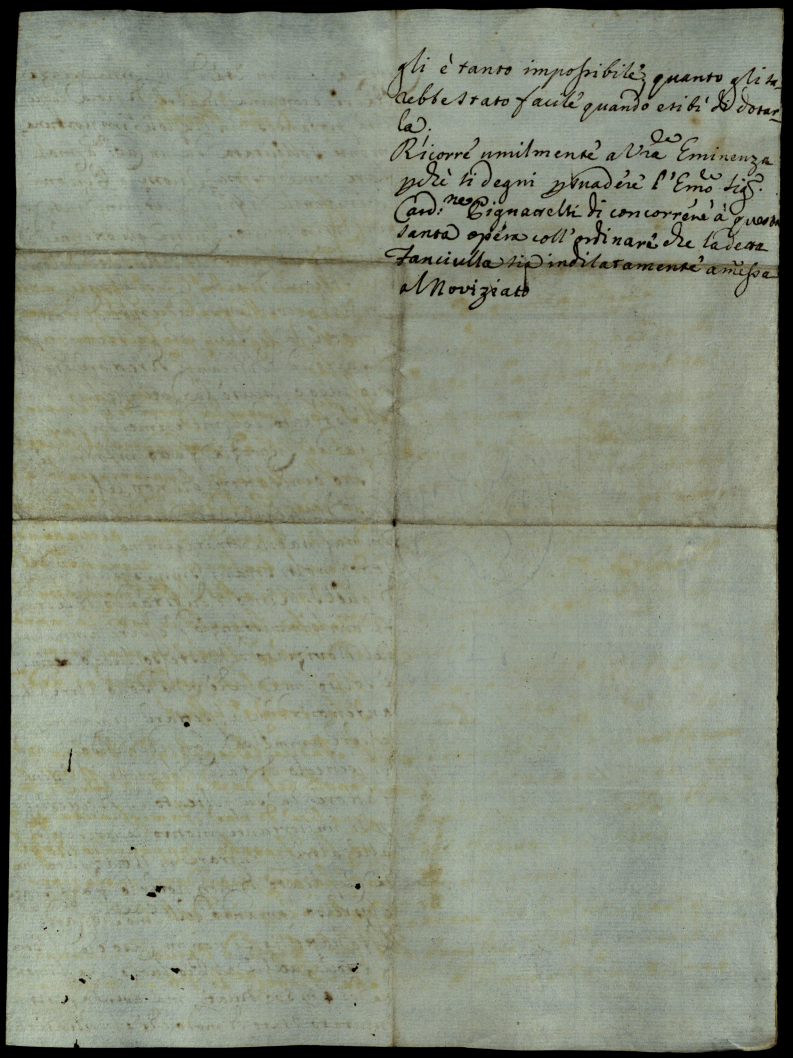 gli è tanto impossibile, quanto gli sa-
rebbe stato facile quando esibì di dotar-
la.
Ricorre umilmente a Vra Eminenza
pchè si degni psuadere l'Emo Sigr.
Card.ne Pignatelli di concorrere à questa
santa opera coll'ordinare che la detta
Fanciulla sia indilatamente amessa
al Noviziato